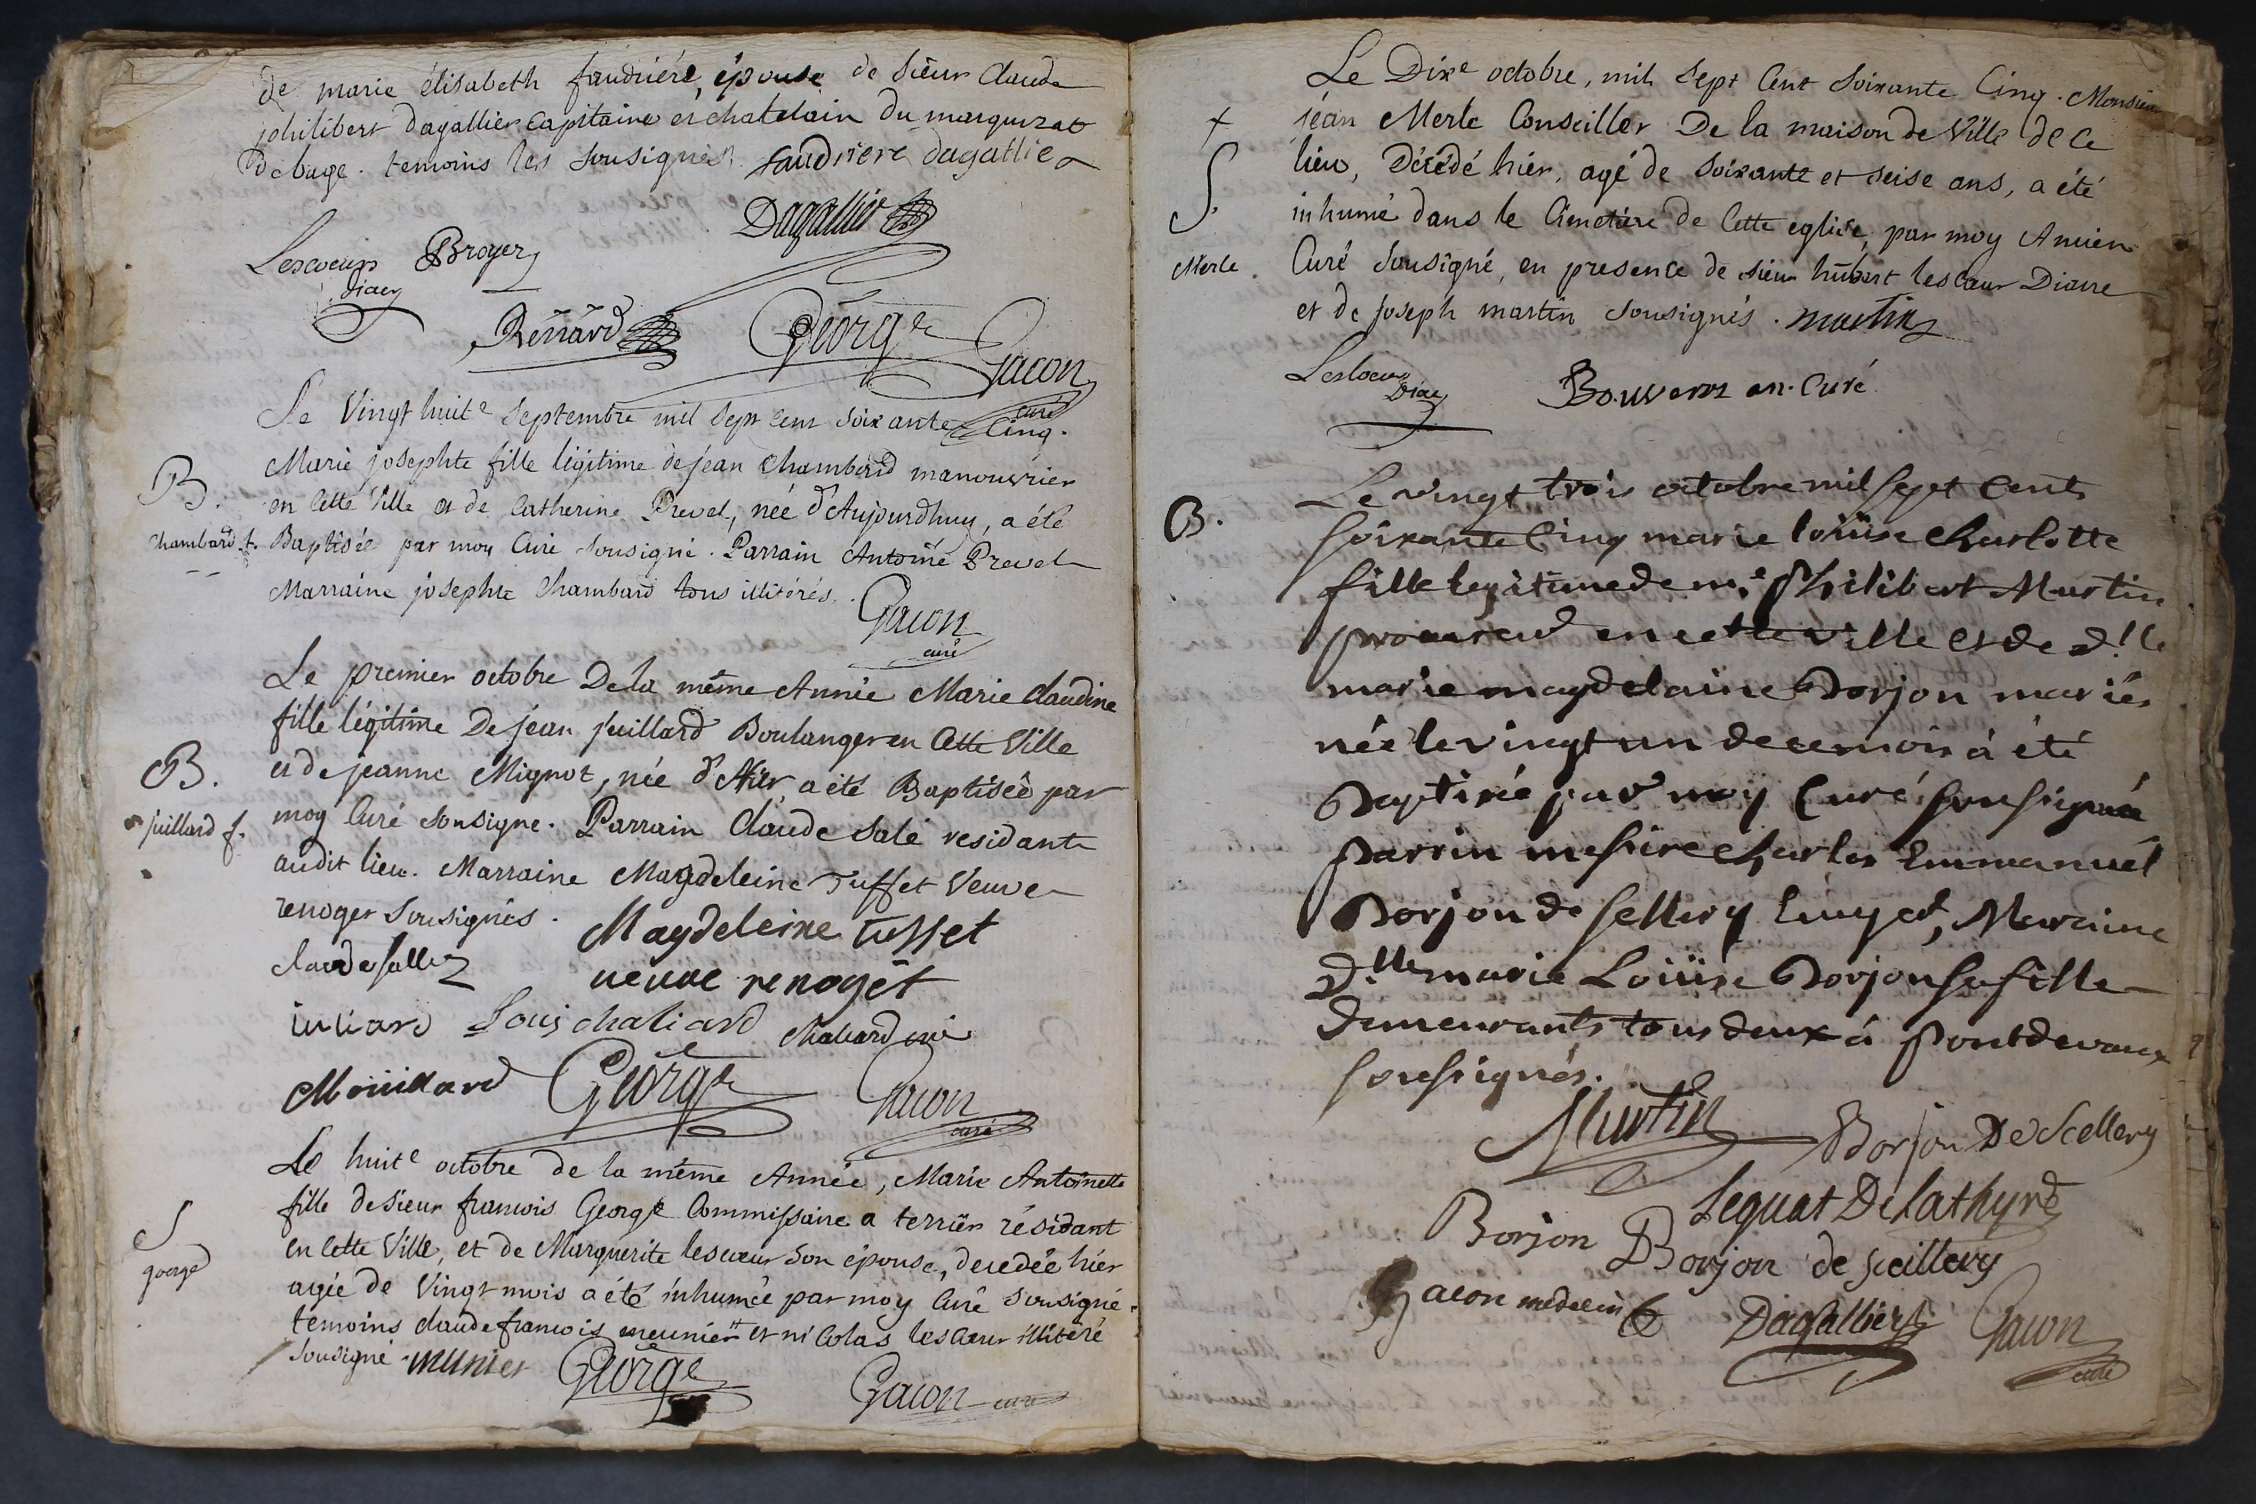 de marie élisabeth faudriére, épouse de Sieur Claude
philibert dagallier capitaine et chatelain du marquizat
de bage. temoins les sousignés. faudriere dagallier
Dagallier
Lescoeurs Broyer
diacre
Renard George Gacon
curé
Le Vingt huite septembre mil sept cent soixante Cinq.
Marie josephte fille légitime de jean Chambard manouvrier
B.
en Cette Ville et de Catherine Prevel, née d'Aujourdhuy, a été
Chambard. f.
Baptisée par moy Curé sousigné. Parrain Antoine Prevel
Marraine josephte Chambard tous illitérés.
Gacon
curé
Le premier octobre De la même Année Marie claudine
fille légitime De jean juillard Boulanger en Cette Ville
B.
et de jeanne Mignot, née d'Hier a été Baptisée par
juillard f.
moy Curé sousigne. Parrain Claude Salé residant
audit lieu. Marraine Magdeleine Tuffet Veuve
renoger sousignés.
Magdeleine tuffet
claude salle
veuve renoget
iuliard Louis chaliard chaliard
Moüillard George Gacon
curé
Le huite octobre de la même Année, Marie Antoinette
fille de Sieur francois George Commissaire a terrier résidant
S
en Cette Ville, et de Marguerite lescoeur son épouse, decedée hier
george
agée de Vingt mois a été inhumée par moy Curé sousigné.
temoins claude francois meunier et nicolas lescoeur illitéré
sousigné munier George
Gacon curé
Le Dixe octobre, mil sept Cent soixante Cinq. Monsieur
+
jean Merle Conseiller De la maison de Ville de ce
S.
lieu, Décédé hier, agé de soixante et seise ans, a été
inhumé dans le Cimetiere de Cette eglise, par moy Ancien
Merle.
Curé sousigné, en presence de sieur hubert lescoeur Diacre
et de joseph martin sousignés. martin
Lescoeur
Diacre
Bouveroz an. Curé
Le vingt trois octobre mil sept Cents
B.
soixante Cinq marie loüise Charlotte
fille legitime de me Philibert Martin
procureur en cette ville et de dlle
marie magdelaine Borjon mariés
née le vingt un de ce mois à été
Baptisée par moy Curé sousigné
Parrin messire Charles Emmanuël
Borjon de Sellery Ecuyer, Maraine
Dlle marie Loüise Borjon sa fille
demeurants tous deux à Pontdevaux
soussignés.
Martin
Borjon De Scellery
Lequat Delathyre
Borjon
Borjon de sceillery
Gacon medecin Dagallier Gacon
curé